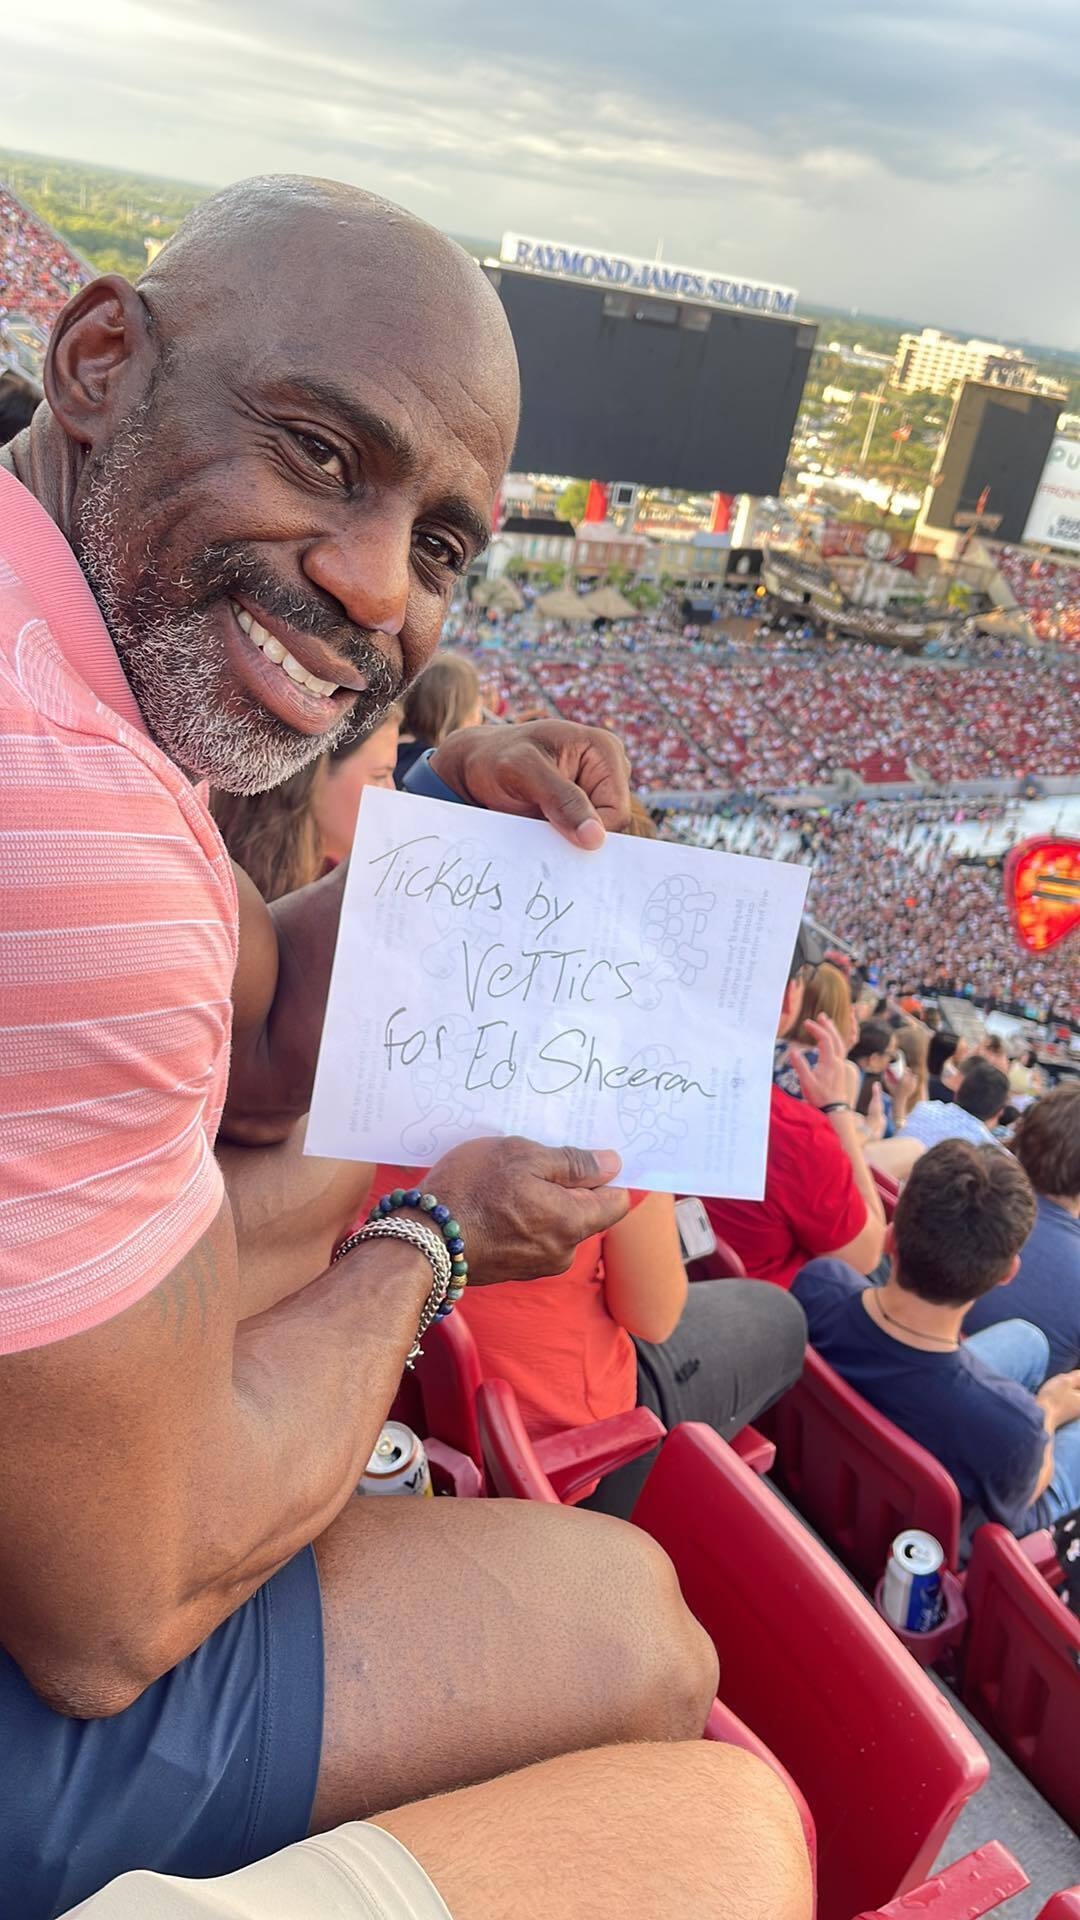 RAYMOND JAMES STADIUM
Tickets by
VetTics
for Ed Sheeran